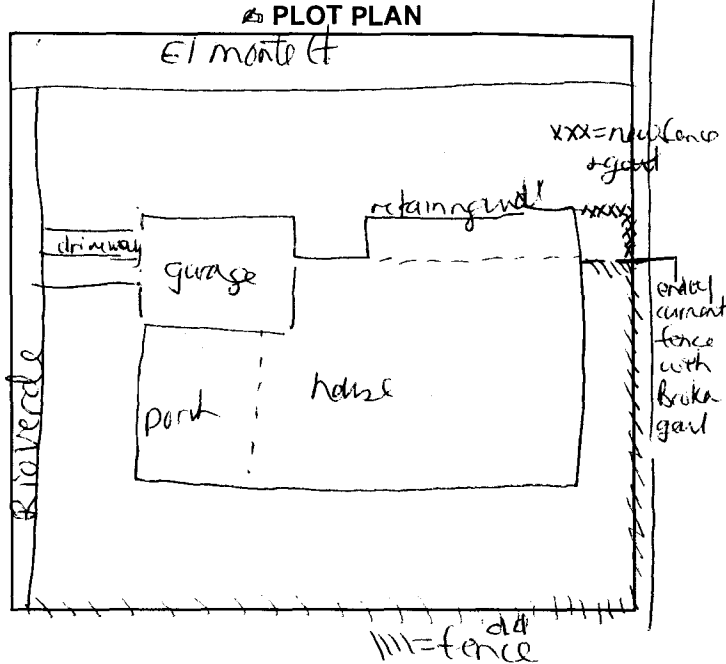 PLOT PLAN
El monte Ct
xxx=new fence
+gard
retaining wall
xxxx
driveway
garage
end of
current
fence
with
Broken
gard
house
Porch
Rio verde
old
////=fence